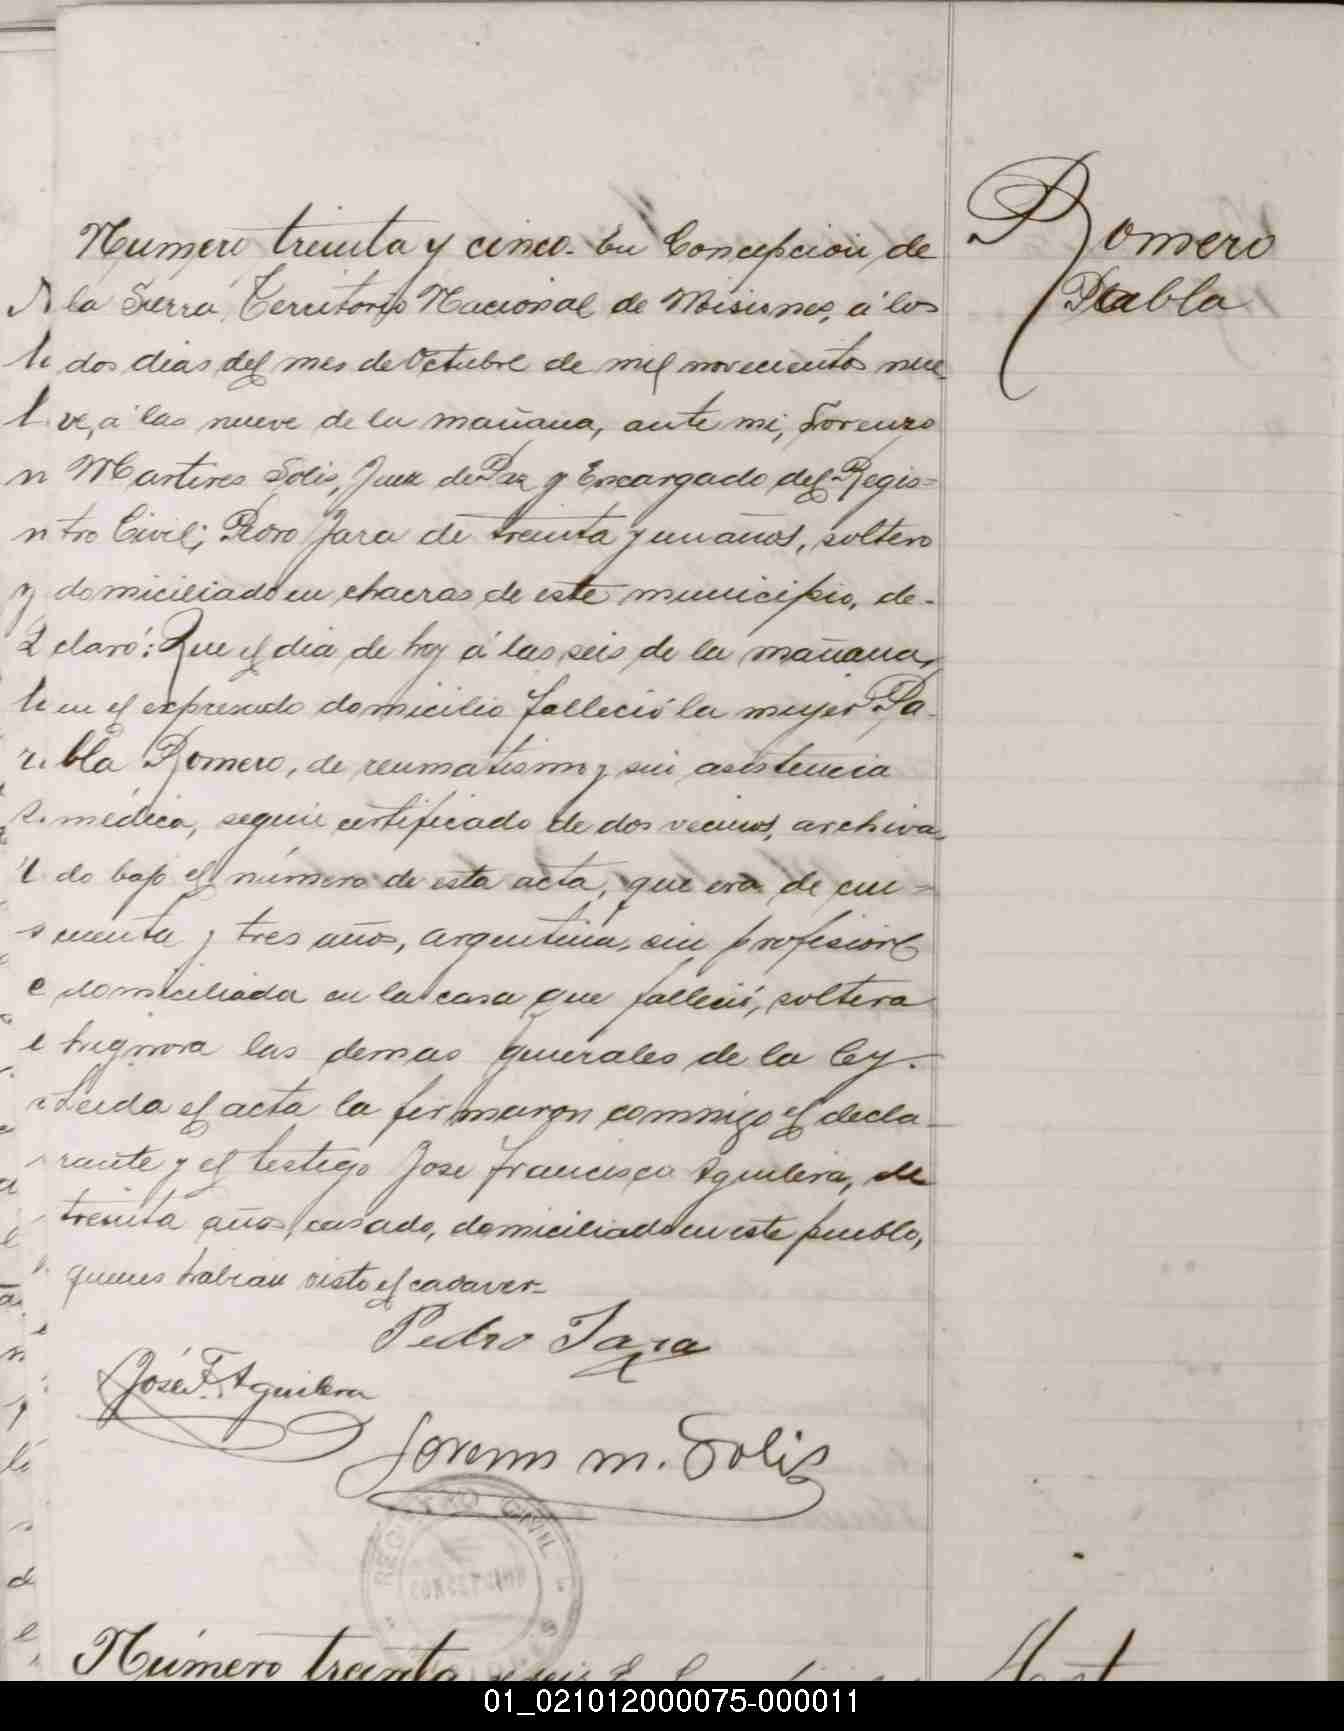 Romero
Pabla
Numero treinta y cinco. En Concepcion de
la Sierra, Territorio Nacional de Misiones, á los
dos dias del mes de Octubre de mil novecientos nue-
ve, á las nueve de la mañana, ante mi, Lorenzo
Martires Solis, Juez de Paz y Encargado del Regis-
tro Civil; Pedro Jara de treinta y un años, soltero
y domiciliado en chacras de este municipio, de-
claró: Que el dia de hoy á las seis de la mañana,
en el expresado domicilio falleció la mujer Pa-
bla Romero, de reumatismo y sin asistencia
médica, segun certificado de dos vecinos, archiva-
do bajo el número de esta acta, que era de cin-
cuenta y tres años, argentina, sin profesion
domiciliada en la casa que falleció, soltera
é hignora las demas generales de la ley.
Leida el acta la firmaron conmigo el decla-
rante y el testigo José Francisco Aguilera, de
treinta años, casado, domiciliado en este pueblo,
quienes habian visto el cadaver-
Pedro Jara
José F. Aguilera
Lorenzo M. Solis
REGISTRO CIVIL
CONCEPCION
Número treinta y seis
01_021012000075-000011